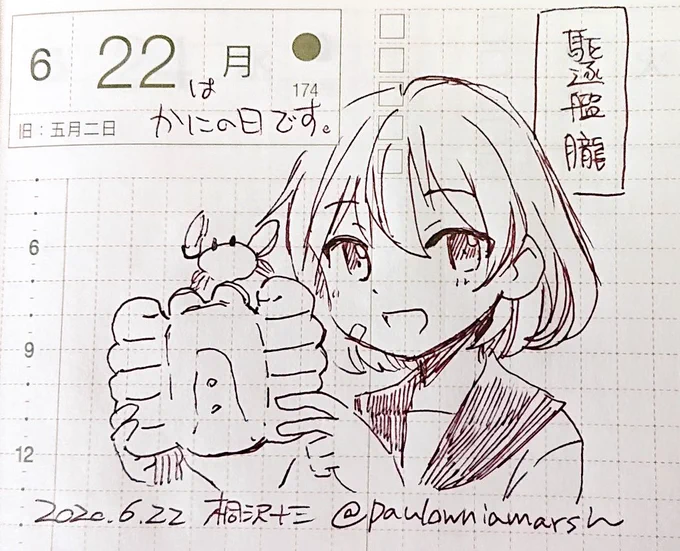 6 22 月
174
は
かにの日です。
旧：五月二日
駆逐艦 朧
6
9
12
2020.6.22 桐沢十三 @paulowniamarsh